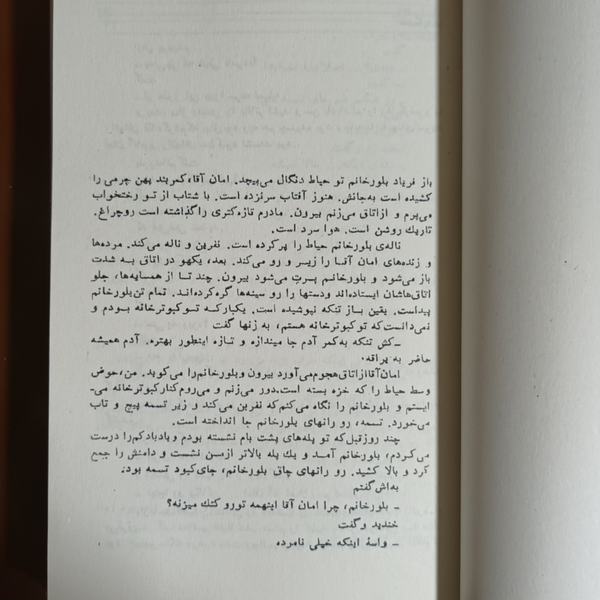 باز فریاد بلورخانم تو حیاط دنگال می‌پیچد. امان آقا، کمربند پهن چرمی را
کشیده است به‌جانش. هنوز آفتاب سرنزده است. با شتاب از تو رختخواب
می‌پرم و ازاتاق می‌زنم بیرون. مادرم تازه‌کتری راگذاشته است روچراغ.
تاریك روشن است. هوا سرد است.
ناله‌ی بلورخانم حیاط را پرکرده است. نفرین و ناله می‌کند. مرده‌ها
و زنده‌های امان آقا را زیر و رو می‌کند. بعد، یکهو در اتاق به شدت
باز می‌شود و بلورخانم پرت می‌شود بیرون. چند تا از همسایه‌ها، جلو
اتاق‌هاشان ایستاده‌اند ودستها را رو سینه‌ها گره‌کرده‌اند. تمام تن‌بلورخانم
پیداست. یقین باز تنکه نپوشیده است. یکبارکه توکبوترخانه بودم و
نمی‌دانست‌که توکبوترخانه هستم، به زنها گفت
ـ کش تنکه به‌کمر آدم جا میندازه و تازه اینطور بهتره. آدم همیشه
حاضر به یراقه.
امان‌آقاازاتاق‌هجوم‌می‌آورد بیرون وبلورخانم‌را می‌کوبد. من،حوض
وسط حیاط را که خزه بسته است.دور می‌زنم و می‌روم‌کنارکبوترخانه می‌ـ
ایستم و بلورخانم را نگاه می‌کنم‌که نفرین می‌کند و زیر تسمه پیچ و تاب
می‌خورد. تسمه، رو رانهای بلورخانم جا انداخته است.
چند روزقبل‌که تو پله‌های پشت بام نشسته بودم وبادبادکم‌را درست
می‌کردم، بلورخانم آمد و یك پله بالاتر ازمن نشست و دامنش را جمع
کرد و بالا کشید. رو رانهای چاق بلورخانم، جای‌کبود تسمه بود.
به‌اش‌گفتم
ـ بلورخانم، چرا امان آقا اینهمه تورو کتك میزنه؟
خندید وگفت
ـ واسهٔ اینکه خیلی نامرده